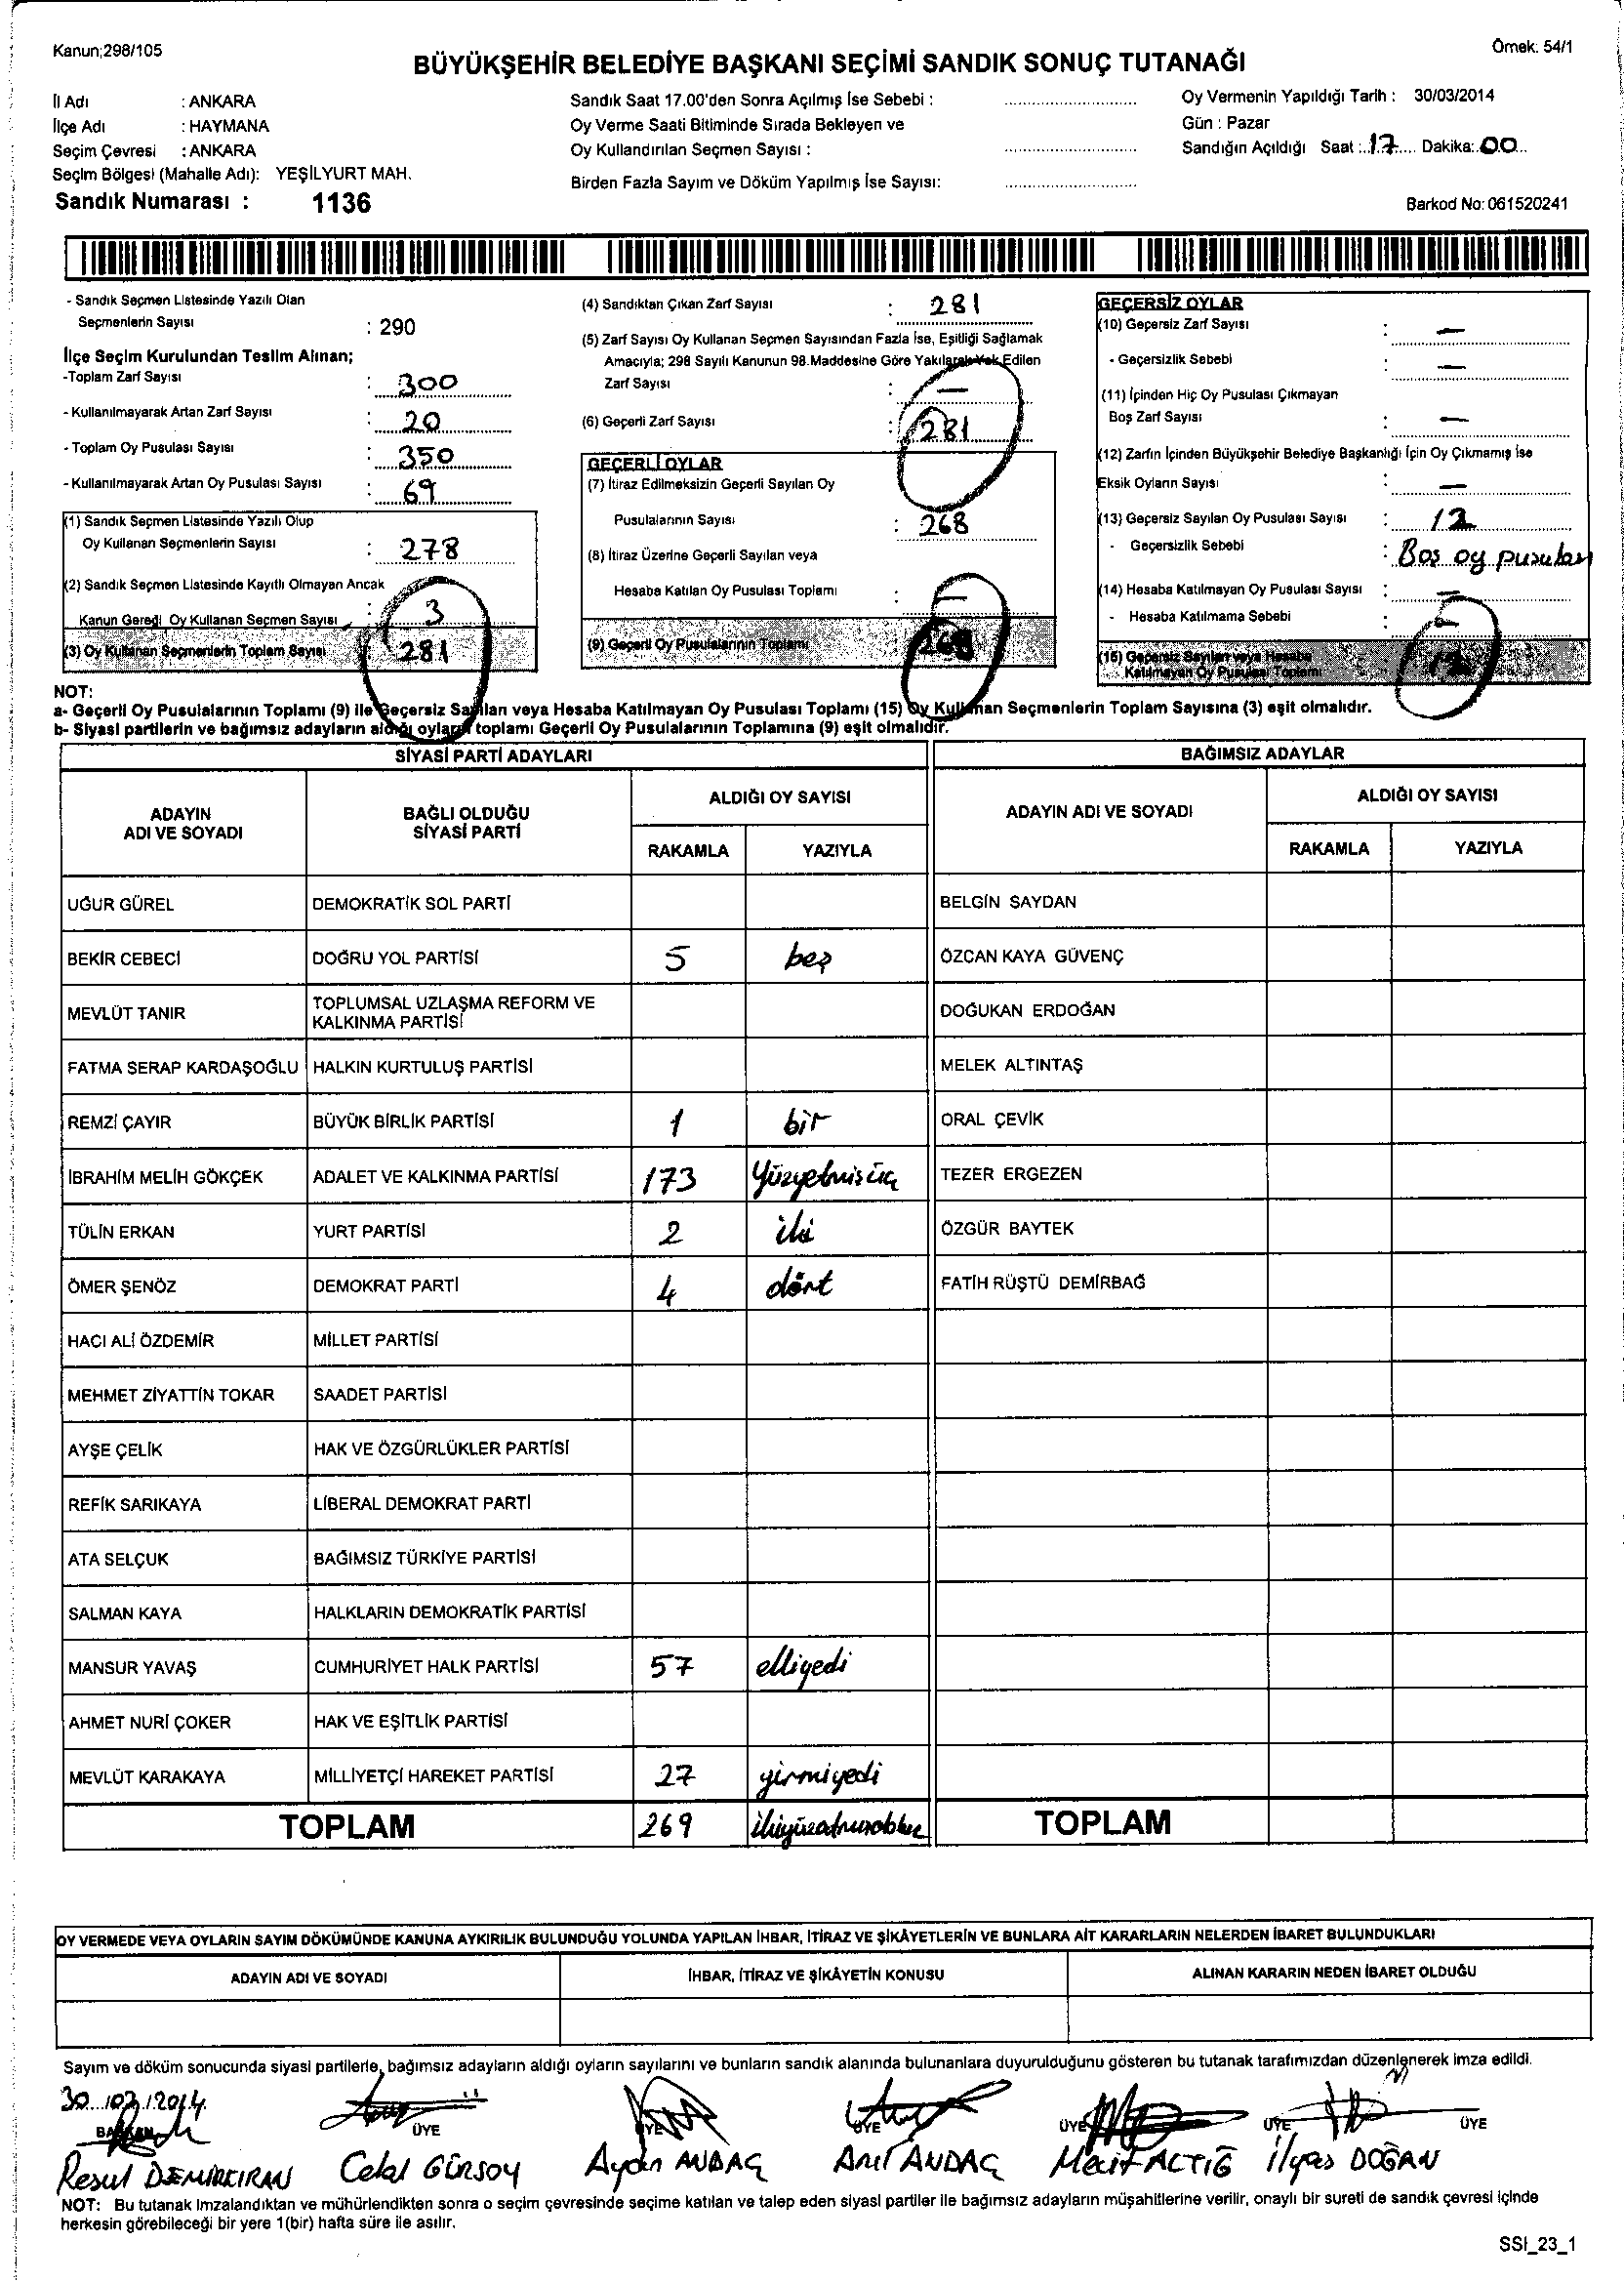 Kanun;298/105
Örnek: 54/1
BÜYÜKŞEHİR BELEDİYE BAŞKANI SEÇİMİ SANDIK SONUÇ TUTANAĞI
İl Adı : ANKARA
İlçe Adı : HAYMANA
Seçim Çevresi : ANKARA
Seçim Bölgesi (Mahalle Adı): YEŞİLYURT MAH.
Sandık Numarası : 1136
Sandık Saat 17.00'den Sonra Açılmış İse Sebebi :
Oy Verme Saati Bitiminde Sırada Bekleyen ve
Oy Kullandırılan Seçmen Sayısı :
Birden Fazla Sayım ve Döküm Yapılmış İse Sayısı:
Oy Vermenin Yapıldığı Tarih : 30/03/2014
Gün : Pazar
Sandığın Açıldığı Saat : 17 Dakika: 00
Barkod No: 061520241
- Sandık Seçmen Listesinde Yazılı Olan
Seçmenlerin Sayısı : 290
İlçe Seçim Kurulundan Teslim Alınan;
-Toplam Zarf Sayısı : 300
- Kullanılmayarak Artan Zarf Sayısı : 20
- Toplam Oy Pusulası Sayısı : 350
- Kullanılmayarak Artan Oy Pusulası Sayısı : 69
(1) Sandık Seçmen Listesinde Yazılı Olup
Oy Kullanan Seçmenlerin Sayısı : 278
(2) Sandık Seçmen Listesinde Kayıtlı Olmayan Ancak
Kanun Gereği Oy Kullanan Seçmen Sayısı : 3
(3) Oy Kullanan Seçmenlerin Toplam Sayısı 281
(4) Sandıktan Çıkan Zarf Sayısı : 281
(5) Zarf Sayısı Oy Kullanan Seçmen Sayısından Fazla İse, Eşitliği Sağlamak
Amacıyla; 298 Sayılı Kanunun 98.Maddesine Göre Yakılarak Yok Edilen
Zarf Sayısı : —
(6) Geçerli Zarf Sayısı : 281
GEÇERLİ OYLAR
(7) İtiraz Edilmeksizin Geçerli Sayılan Oy
Pusulalarının Sayısı : 268
(8) İtiraz Üzerine Geçerli Sayılan veya
Hesaba Katılan Oy Pusulası Toplamı : —
(9) Geçerli Oy Pusulalarının Toplamı 268
GEÇERSİZ OYLAR
(10) Geçersiz Zarf Sayısı : —
- Geçersizlik Sebebi : —
(11) İçinden Hiç Oy Pusulası Çıkmayan
Boş Zarf Sayısı : —
(12) Zarfın İçinden Büyükşehir Belediye Başkanlığı İçin Oy Çıkmamış İse
Eksik Oyların Sayısı : —
(13) Geçersiz Sayılan Oy Pusulası Sayısı : 12
- Geçersizlik Sebebi : Boş oy pusulası
(14) Hesaba Katılmayan Oy Pusulası Sayısı : —
- Hesaba Katılmama Sebebi : —
(15) Geçersiz Sayılan veya Hesaba
Katılmayan Oy Pusulası Toplamı 12
NOT:
a- Geçerli Oy Pusulalarının Toplamı (9) ile Geçersiz Sayılan veya Hesaba Katılmayan Oy Pusulası Toplamı (15) Oy Kullanan Seçmenlerin Toplam Sayısına (3) eşit olmalıdır.
b- Siyasi partilerin ve bağımsız adayların aldığı oyların toplamı Geçerli Oy Pusulalarının Toplamına (9) eşit olmalıdır.
SİYASİ PARTİ ADAYLARI BAĞIMSIZ ADAYLAR
ADAYIN ADI VE SOYADI BAĞLI OLDUĞU SİYASİ PARTİ ALDIĞI OY SAYISI ADAYIN ADI VE SOYADI ALDIĞI OY SAYISI
RAKAMLA YAZIYLA RAKAMLA YAZIYLA
UĞUR GÜREL DEMOKRATİK SOL PARTİ BELGİN SAYDAN
BEKİR CEBECİ DOĞRU YOL PARTİSİ 5 beş ÖZCAN KAYA GÜVENÇ
MEVLÜT TANIR TOPLUMSAL UZLAŞMA REFORM VE KALKINMA PARTİSİ DOĞUKAN ERDOĞAN
FATMA SERAP KARDAŞOĞLU HALKIN KURTULUŞ PARTİSİ MELEK ALTINTAŞ
REMZİ ÇAYIR BÜYÜK BİRLİK PARTİSİ 1 bir ORAL ÇEVİK
İBRAHİM MELİH GÖKÇEK ADALET VE KALKINMA PARTİSİ 173 Yüzyetmişüç TEZER ERGEZEN
TÜLİN ERKAN YURT PARTİSİ 2 iki ÖZGÜR BAYTEK
ÖMER ŞENÖZ DEMOKRAT PARTİ 4 dört FATİH RÜŞTÜ DEMİRBAĞ
HACI ALİ ÖZDEMİR MİLLET PARTİSİ
MEHMET ZİYATTİN TOKAR SAADET PARTİSİ
AYŞE ÇELİK HAK VE ÖZGÜRLÜKLER PARTİSİ
REFİK SARIKAYA LİBERAL DEMOKRAT PARTİ
ATA SELÇUK BAĞIMSIZ TÜRKİYE PARTİSİ
SALMAN KAYA HALKLARIN DEMOKRATİK PARTİSİ
MANSUR YAVAŞ CUMHURİYET HALK PARTİSİ 57 elliyedi
AHMET NURİ ÇOKER HAK VE EŞİTLİK PARTİSİ
MEVLÜT KARAKAYA MİLLİYETÇİ HAREKET PARTİSİ 27 yirmiyedi
TOPLAM 269 ikiyüzatmışdokuz TOPLAM
OY VERMEDE VEYA OYLARIN SAYIM DÖKÜMÜNDE KANUNA AYKIRILIK BULUNDUĞU YOLUNDA YAPILAN İHBAR, İTİRAZ VE ŞİKÂYETLERİN VE BUNLARA AİT KARARLARIN NELERDEN İBARET BULUNDUKLARI
ADAYIN ADI VE SOYADI İHBAR, İTİRAZ VE ŞİKÂYETİN KONUSU ALINAN KARARIN NEDEN İBARET OLDUĞU
Sayım ve döküm sonucunda siyasi partilerle, bağımsız adayların aldığı oyların sayılarını ve bunların sandık alanında bulunanlara duyurulduğunu gösteren bu tutanak tarafımızdan düzenlenerek imza edildi.
30/03/2014
BAŞKAN ÜYE ÜYE ÜYE ÜYE ÜYE ÜYE
Resul DEMİRKIRAN Celal GÜRSOY Aydın ANDAÇ Anıl ANDAÇ Mecit ALTIĞ İlyas DOĞAN
NOT: Bu tutanak imzalandıktan ve mühürlendikten sonra o seçim çevresinde seçime katılan ve talep eden siyasi partiler ile bağımsız adayların müşahitlerine verilir, onaylı bir sureti de sandık çevresi içinde
herkesin görebileceği bir yere 1(bir) hafta süre ile asılır.
SSI_23_1